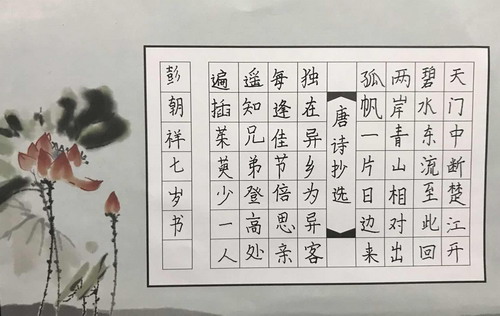 天门中断楚江开
碧水东流至此回
两岸青山相对出
孤帆一片日边来
唐诗抄选
独在异乡为异客
每逢佳节倍思亲
遥知兄弟登高处
遍插茱萸少一人
彭朝祥七岁书